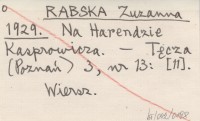 RABSKA Zuzanna
1929. Na Harendzie
Kasprowicza. — Tęcza
(Poznań) 3, nr 13: [11].
Wiersz.